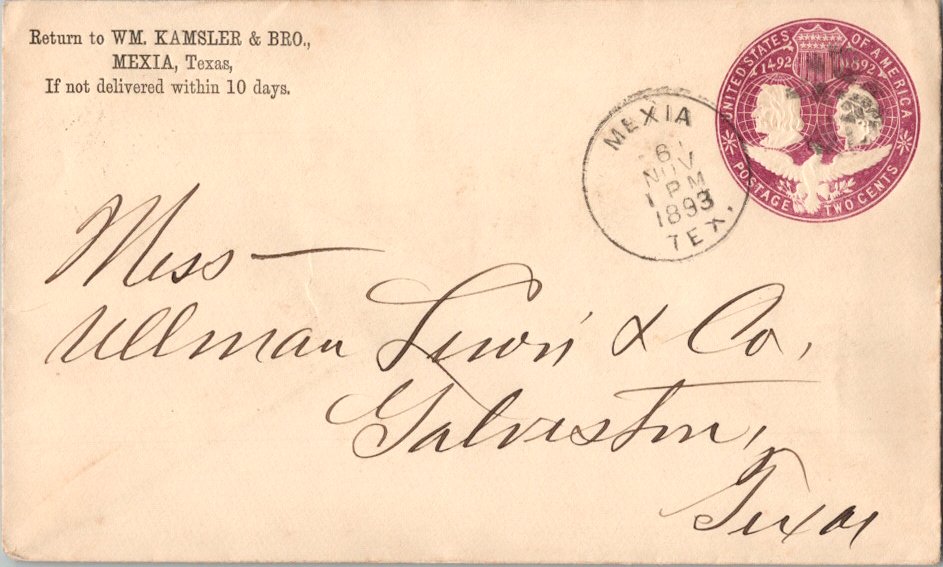 Return to WM. KAMSLER & BRO.,
MEXIA, Texas,
If not delivered within 10 days.
UNITED STATES OF AMERICA
1492 1892
POSTAGE TWO CENTS
MEXIA
6
NOV
1 PM
1893
TEX.
Mess
Ullman Lewis & Co,
Galveston,
Texas